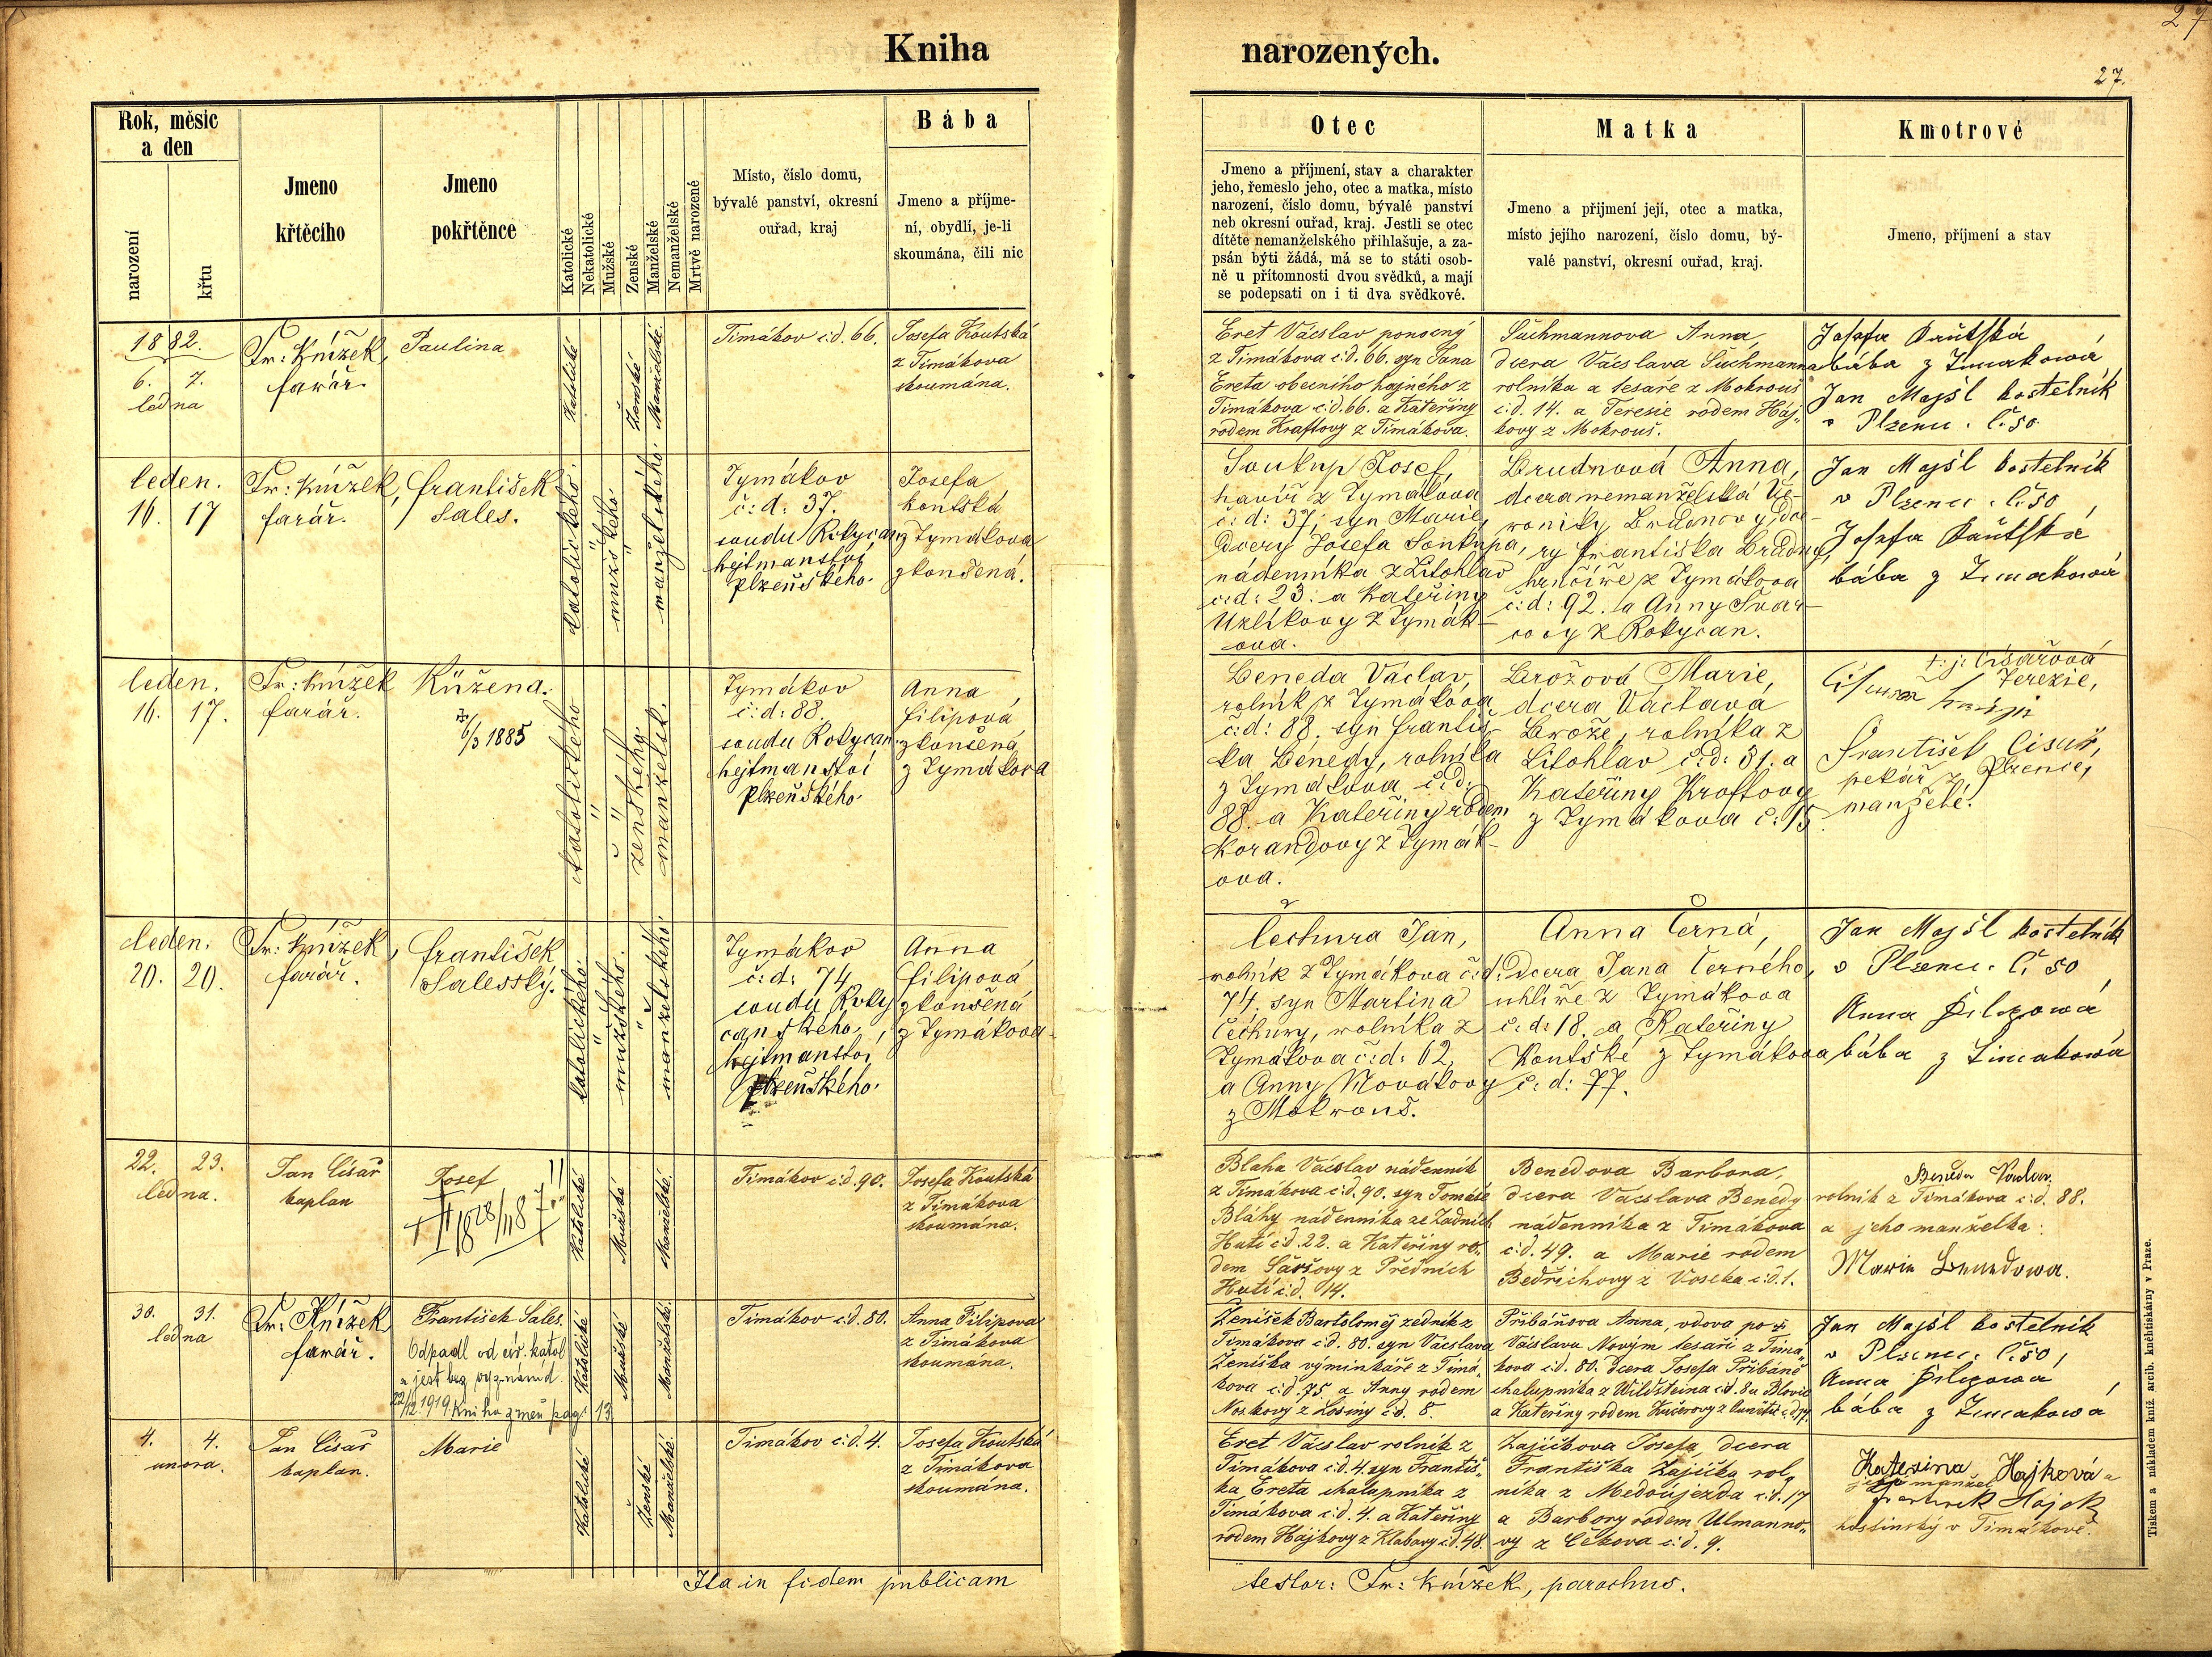 27
Kniha narozených.
27.
Rok, měsíc
a den
narození
křtu
Jmeno
křtěcího
Jmeno
pokřtěnce
Katolické
Nekatolické
Mužské
Ženské
Manželské
Nemanželské
Mrtvě narozené
Místo, číslo domu,
bývalé panství, okresní
ouřad, kraj
Bába
Jmeno a příjme-
ní, obydlí, je-li
skoumána, čili nic
Otec
Jmeno a příjmení, stav a charakter
jeho, řemeslo jeho, otec a matka, místo
narození, číslo domu, bývalé panství
neb okresní ouřad, kraj. Jestli se otec
dítěte nemanželského přihlašuje, a za-
psán býti žádá, má se to státi osob-
ně u přítomnosti dvou svědků, a mají
se podepsati on i ti dva svědkové.
Matka
Jmeno a příjmení její, otec a matka,
místo jejího narození, číslo domu, bý-
valé panství, okresní ouřad, kraj.
Kmotrové
Jmeno, příjmení a stav
1882.
6. 7.
ledna
Fr: Knížek,
farář.
Paulina
Katolické
Ženské
Manželské.
Timákov č:d. 66.
Josefa Koutská
z Timákova
skoumána.
Eret Václav ponocný
z Timákova č:d. 66. syn Jana
Ereta obecního hajného z
Timákova č:d. 66. a Kateřiny
rodem Kraftovy z Timákova.
Suchmannova Anna,
dcera Václava Suchmanna
rolníka a tesaře z Mokrouš
č:d. 14. a Teresie rodem Háj-
kovy z Mokrouš.
Josefa Kautská
bába z Timakowa
Jan Majšl kostelník
v Plzenci. č. 50.
leden.
16. 17
Fr: Knížek,
farář.
František
Sales.
katolického.
mužského.
manželského.
Tymákov
č: d: 37.
soudu Rokycan
hejtmanství
plzeňského.
Josefa
koutská
z Tymákova
zkoušená.
Soukup Josef,
havíř z Tymákova
č: d: 37; syn Marie,
dcery Josefa Soukupa,
nádenníka z Litohlav
č: d: 23. a Kateřiny
Uzlíkovy z Tymák-
ova.
Brudnová Anna,
dcera nemanželská Ve-
roniky Brdnovy, dce-
ry františka Brudny,
hrnčíře z Tymákova
č: d: 92. a Anny Švar-
covy z Rokycan.
Jan Majšl kostelník
v Plzenci. č. 50
Josefa Kautská
bába z Timakowa
leden.
16. 17.
Fr: Knížek
farář.
Růžena.
6/3 1885
katolického
ženského.
manželsk.
Tymákov
č: d: 88.
soudu Rokycan.
hejtmanství
plzeňského.
Anna
filipová
zkoušená
z Tymákova
Beneda Václav,
rolník z Tymákova
č: d: 88. syn františ-
ka Benedy, rolníka
z Tymákova č: d:
88. a Kateřiny rodem
Korandovy z Tymák-
ova.
Brožová Marie,
dcera Václava
Brože, rolníka z
Litohlav č: d: 31. a
Kateřiny Kroftovy
z Tymákova č: 15.
t: j: Císařová
Terezie,
František Cisař,
pekař z Plzence,
manželé.
leden.
20. 20.
Fr: Knížek,
farář.
františek
Salesský.
katolického.
mužského.
manželského.
Tymákov
č: d: 74
soudu Roky
canského,
hejtmanství
plzeňského.
Anna
filipová
zkoušená
z Tymákova
Čechura Jan,
rolník z Tymákova č: d:
74, syn Martina
Čechury, rolníka z
Tymákova č: d: 62,
a Anny Novákovy
z Mokrouš.
Anna Černá,
Dcera Jana Černého,
uhlíře z Tymákova
č: d: 18. a Kateřiny
Koutské z Tymákova
č: d: 77.
Jan Majšl kostelník
v Plzenci. č. 50
Anna Filipowa
bába z Timakowa
22. 23.
ledna.
Jan Císař
kaplan
Josef
Katolické
Mužské
Manželské.
Timákov č:d. 90.
Josefa Koutská
z Timákova
skoumána.
Blaha Václav nádenník
z Timákova č:d. 90. syn Tomáše
Bláhy nádenníka ze Zadních
Hutí č:d. 22. a Kateřiny ro-
dem Sášovy z Předních
Hutí č:d. 14.
Benedova Barbora,
dcera Václava Benedy
nádenníka z Timákova
č:d. 49. a Marie rodem
Bedřichovy z Voseka č:d. 1.
rolník z Timákova č:d. 88.
a jeho manželka:
Marie Benedowa.
30. 31.
ledna
Fr: Knížek
farář.
František Sales.
Odpadl od cír. katol
a jest bez vyznání d.
22/12 1919. Kniha změn pag. 13
Katolické
Mužské
Manželské.
Timákov č:d. 80.
Anna Filipova
z Timákova
skoumána.
Zeníšek Bartoloměj zedník z
Timákova č:d. 80. syn Václava
Zeníška výminkáře z Timá-
kova č:d. 75 a Anny rodem
Noskovy z Losiny č:d. 8.
Přibáňova Anna, vdova po
Václavu Novým tesaři z Timá-
kova č:d. 80. dcera Josefa Přibáně
chalupníka z Wildsteina č:d. 8 u Blovic
a Kateřiny rodem Kučerovy
Jan Majšl kostelník
v Plzenci. č. 50,
Anna Filipowa,
bába z Timakowa
4. 4.
unora.
Jan Císař
kaplan.
Marie
Katolické
Ženské
Manželské.
Timákov č:d. 4.
Josefa Koutská
z Timákova
skoumána.
Eret Václav rolník z
Timákova č:d. 4. syn Františ-
ka Ereta chalupníka z
Timákova č:d. 4. a Kateřiny
rodem Hajkovy z Klabavy č:d. 48.
Zajíčkova Josefa, dcera
Františka Zajíčka rol-
níka z Medoújezda č:d. 17
a Barbory rodem Ulmanno-
vy z Čekova č:d. 9.
Katerina Hajková a
manžel
Hájek
hostinský v Timákově.
Ita in fidem publicam
testor: Fr: Knížek, parochus.
Tiskem a nákladem kníž. arcib. knihtiskárny v Praze.